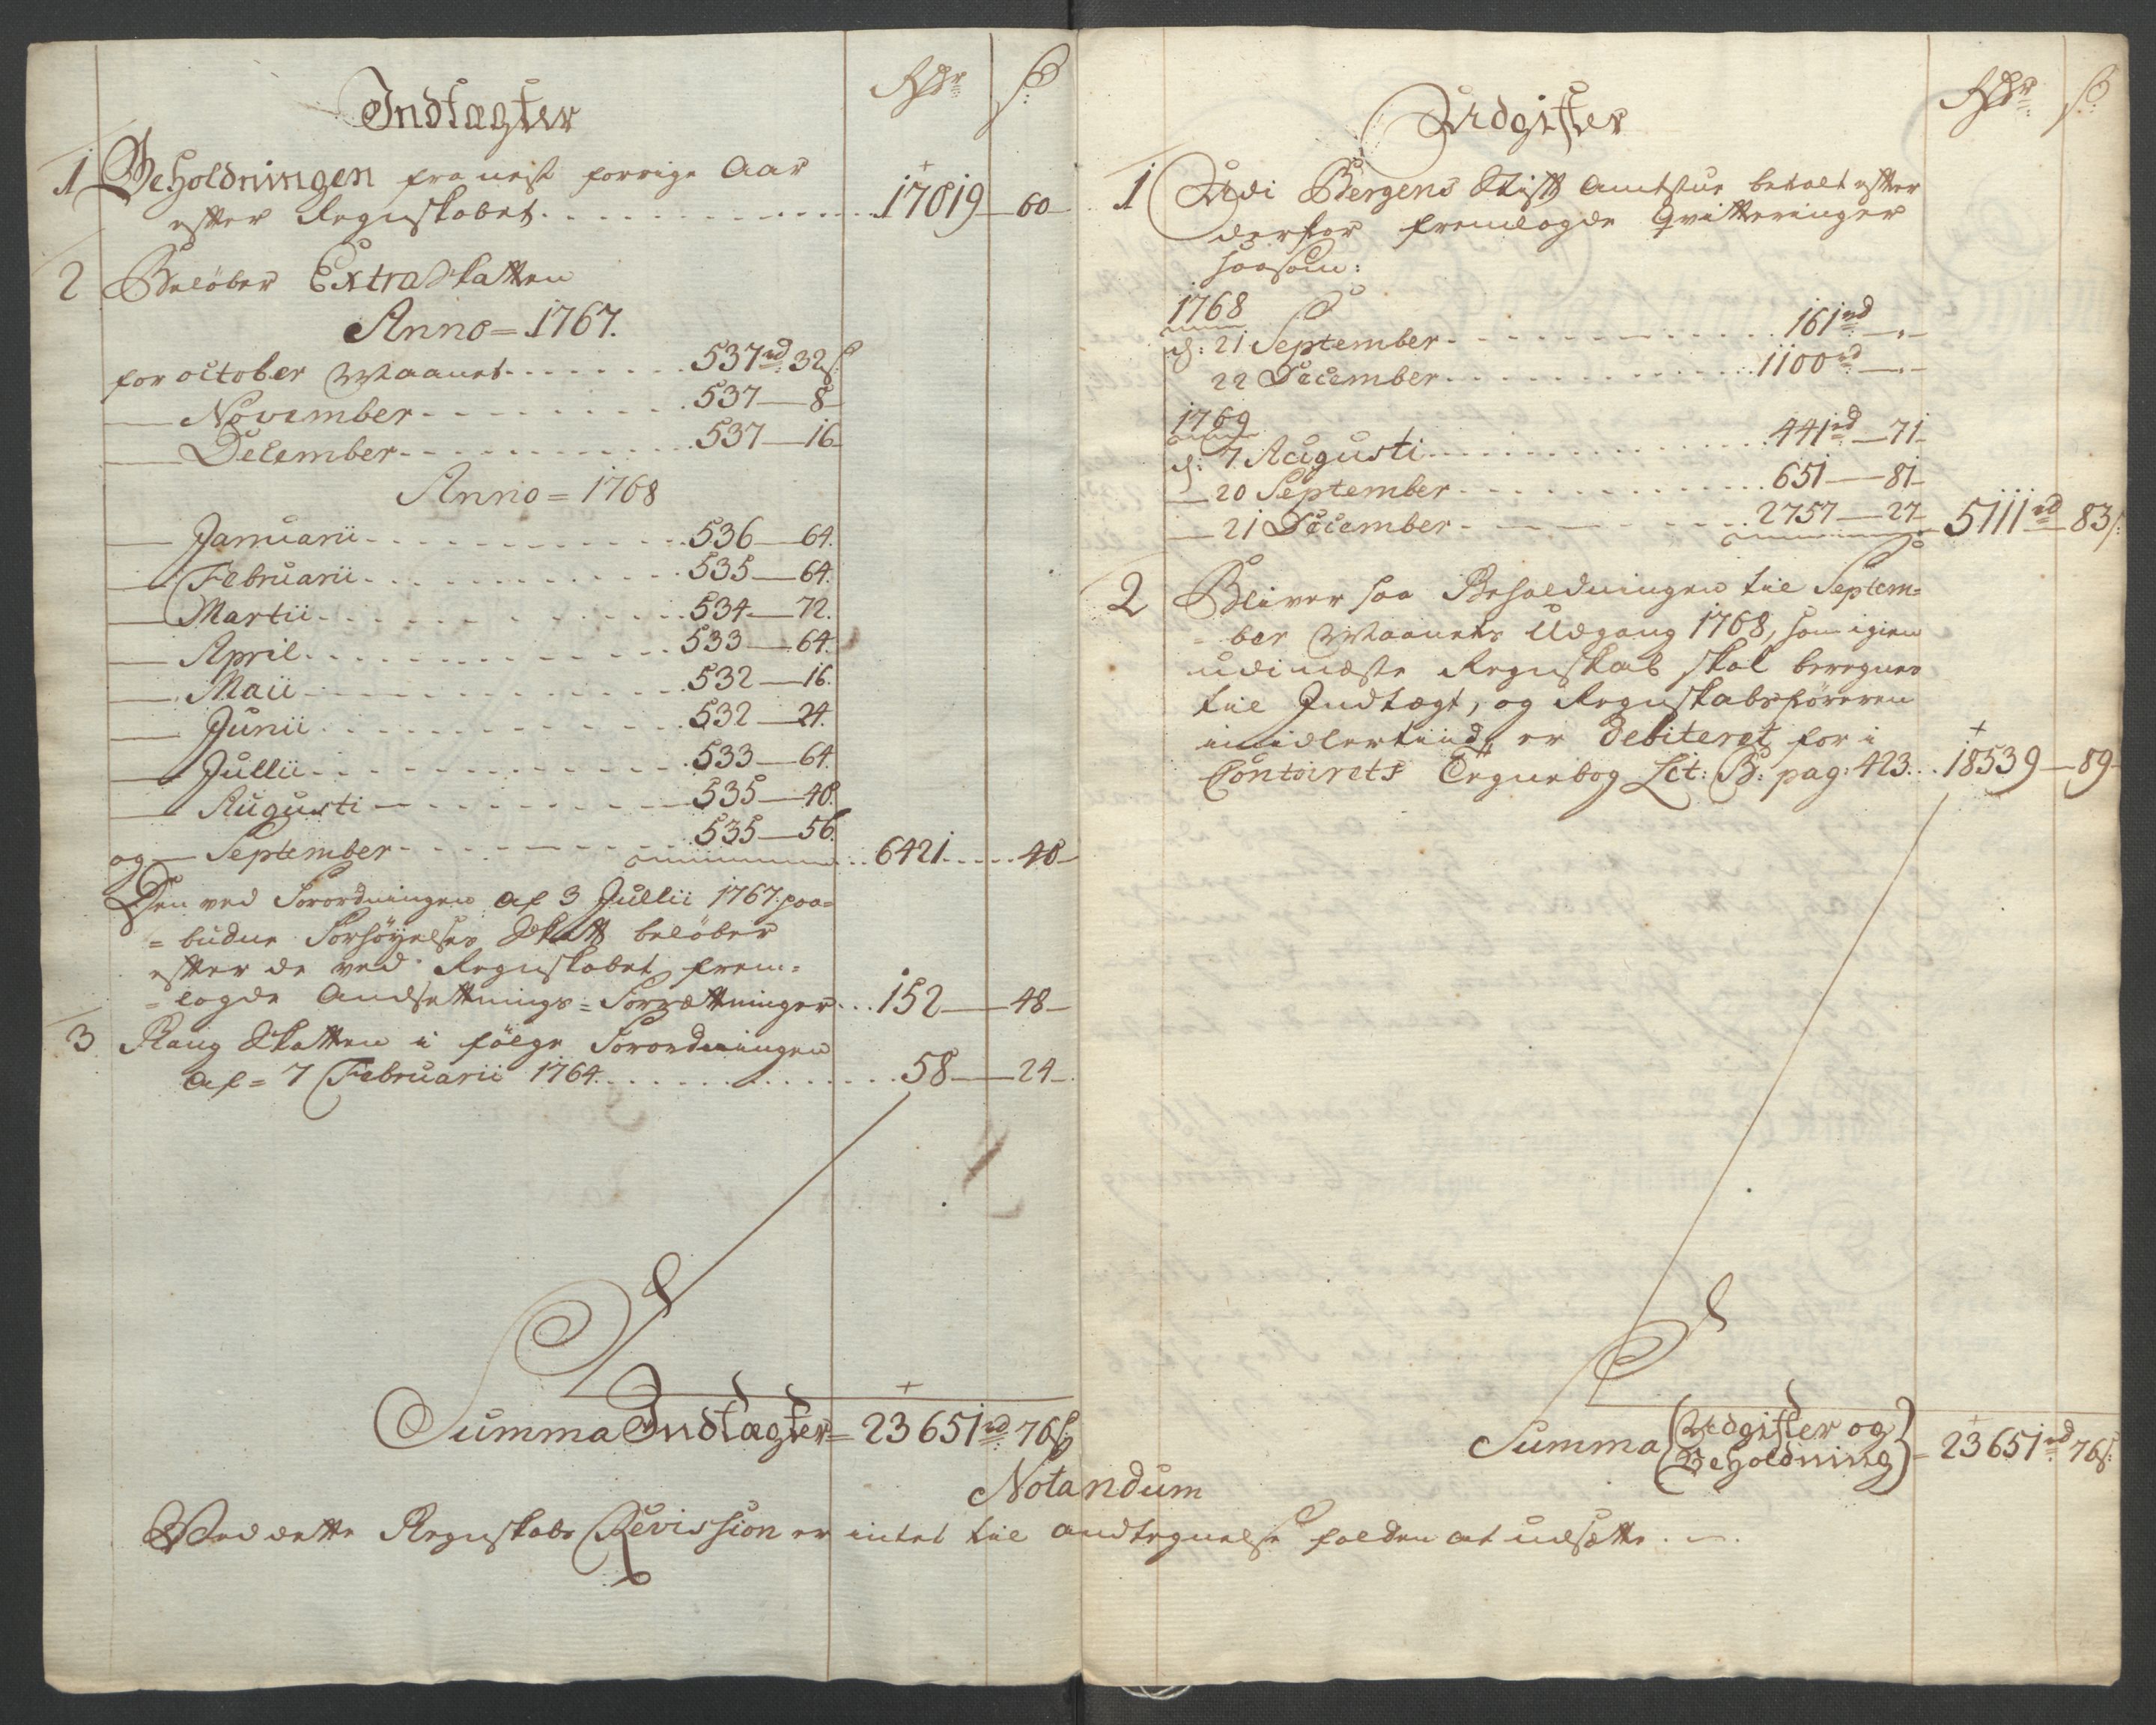 Indtægter
Rdr ß
1 Beholdningen fra nest forrige Aar
efter Regnskabet. 17019 — 60
2 Beløber Extra Skatten
Anno = 1767.
for october Maanet 537rd 32ß
— November 537 — 8
— December 537 — 16
Anno = 1768
— Januarii 536 — 64.
— Februarii 535 — 64.
— Martii 534 — 72.
— April 533 — 64.
— Maii 532 — 16.
— Junii 532 — 24.
— Jullii 533 — 64.
— Augusti 535 — 40.
og — September 535 — 56. 6421 40
Den ved Forordningen af 3 Jullii 1767. paa=
=budne Forhøyelses Skatt beløber
efter de ved Regnskabet frem=
=lagde Andsættnings=Forrættninger 152 — 48
3 Rang Skatten i følge Forordningen
af = 7 Februarii 1764. 58 — 24
Summa Indtægter = 23651rd 76ß
Udgifter
Rdr ß
1 Udi Bergens Stift Amtstue betalt efter
derfor fremlagde Qvitteringer
saasom:
1768
d: 21 September 161rd — „ —
22 December 1100rd — „ —
1769
d: 7 Augusti 441rd — 71
— 20 September 651 — 81
— 21 December 2757 — 27 5111rd 83ß
2 Bliver saa Beholdningen til Septem=
=ber Maaneds Udgang 1768, som igien
udi næste Regnskab skal beregnes
til Indtægt, og Regnskabsføreren
imidlertiid er Debiteret for i
Contoirets Eignebog Lit: B: pag: 423. 18539 — 89
Summa (Udgifter og
Beholdning) = 23651rd 76ß
Notandum
Ved dette Regnskabs Revission er intet til andtegnelse falden at udsætte.